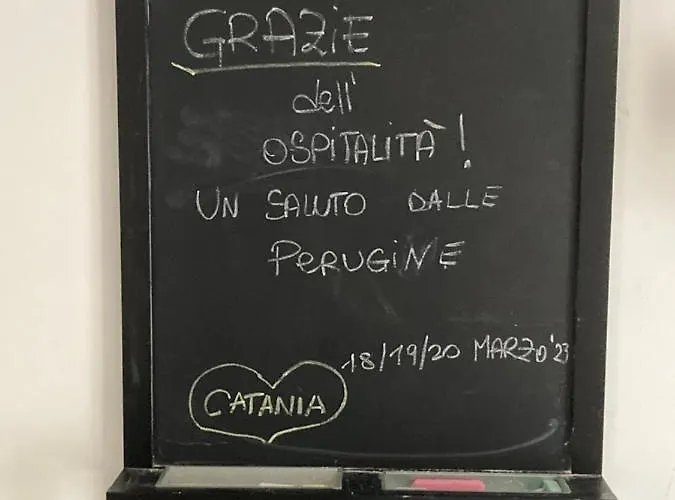 GRAZIE
dell'
OSPITALITÀ!
UN SALUTO DALLE
PERUGINE
18/19/20 MARZO'23
CATANIA